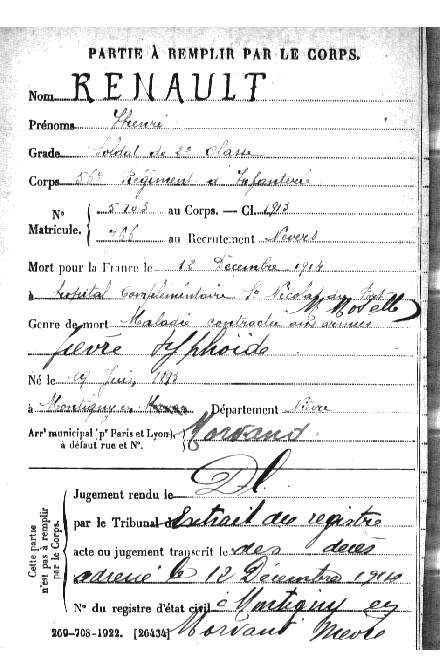 PARTIE À REMPLIR PAR LE CORPS.
Nom RENAULT
Prénoms Henri
Grade Soldat de 2e classe
Corps 56e Régiment d'Infanterie
N° Matricule. 5103 au Corps. — Cl. 1913
au Recrutement Nevers
Mort pour la France le 12 Décembre 1914
à Hopital Complémentaire St Nicolas du Port
M Moselle
Genre de mort Maladie contractée aux armées
fièvre typhoïde
Né le 19 Juin 1893
à Montigny en Département Nièvre
Arrt municipal (pr Paris et Lyon), à défaut rue et N°. Morvand
Cette partie n'est pas à remplir par le Corps.
Jugement rendu le
par le Tribunal de Extrait du registre
acte ou jugement transcrit le des décès
adressé le 12 Décembre 1914
N° du registre d'état civil à Montigny en
Morvand Nièvre
269-708-1922. [26434]